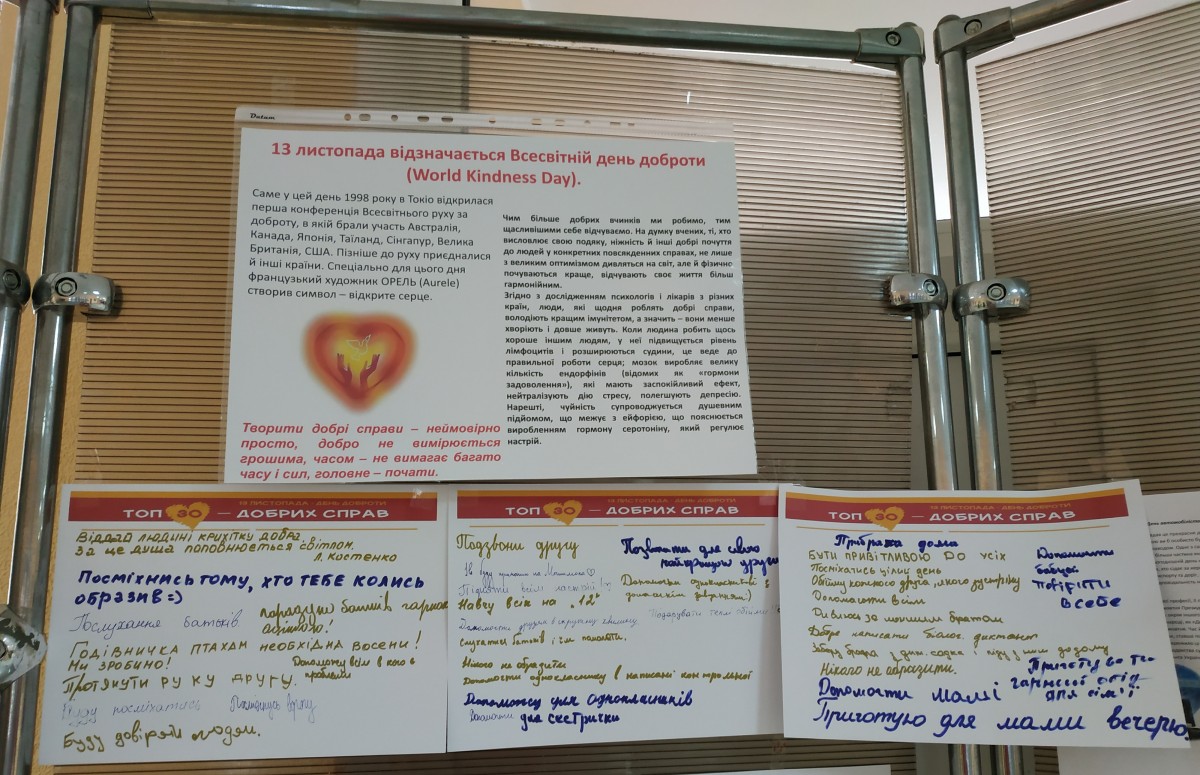 Datum
13 листопада відзначається Всесвітній день доброти
(World Kindness Day).
Саме у цей день 1998 року в Токіо відкрилася
перша конференція Всесвітнього руху за
доброту, в якій брали участь Австралія,
Канада, Японія, Таїланд, Сінгапур, Велика
Британія, США. Пізніше до руху приєдналися
й інші країни. Спеціально для цього дня
французький художник ОРЕЛЬ (Aurele)
створив символ – відкрите серце.
Творити добрі справи – неймовірно
просто, добро не вимірюється
грошима, часом – не вимагає багато
часу і сил, головне – почати.
Чим більше добрих вчинків ми робимо, тим
щасливішими себе відчуваємо. На думку вчених, ті, хто
висловлює свою подяку, ніжність й інші добрі почуття
до людей у конкретних повсякденних справах, не лише
з великим оптимізмом дивляться на світ, але й фізично
почуваються краще, відчувають своє життя більш
гармонійним.
Згідно з дослідженням психологів і лікарів з різних
країн, люди, які щодня роблять добрі справи,
володіють кращим імунітетом, а значить – вони менше
хворіють і довше живуть. Коли людина робить щось
хороше іншим людям, у неї підвищується рівень
лімфоцитів і розширюються судини, це веде до
правильної роботи серця; мозок виробляє велику
кількість ендорфінів (відомих як «гормони
задоволення»), які мають заспокійливий ефект,
нейтралізують дію стресу, полегшують депресію.
Нарешті, чуйність супроводжується душевним
підйомом, що межує з ейфорією, що пояснюється
виробленням гормону серотоніну, який регулює
настрій.
ЛИСТОПАДА - ДЕНЬ ДОБРОТИ
ТОП 30 — ДОБРИХ СПРАВ
Віддай людині крихітку добра,
За це душа поповнюється світлом.
Л. Костенко
Посміхнись тому, хто тебе колись
образив =)
Послухання батьків
Годівничка птахам необхідна восени!
Ми зробино!
Допоможу всім в кого є
проблеми
Протянути руку другу.
Буду посміхатись
Буду довіряти людям.
ЛИСТОПАДА - ДЕНЬ ДОБРОТИ
ТОП 30 — ДОБРИХ СПРАВ
Подзвони другу
Навчу всіх на "12"
Слухати батьків і їм помагати.
Нікого не образити
Допомогти однокласнику в написані контрольної
Допоможу для однокласників
Допомогти для сестрички
ЛИСТОПАДА - ДЕНЬ ДОБРОТИ
ТОП 30 — ДОБРИХ СПРАВ
Прибрати дома
Бути привітливою до усіх
Посміхатись цілий день
Обійму кожного друга, якого зустріну
Допомагати всім
Допомогти
бабусі
повірити
в себе
Добре написати біолог. диктант
Нікого не образити.
Допомогти мамі
Приготую для мами вечерю